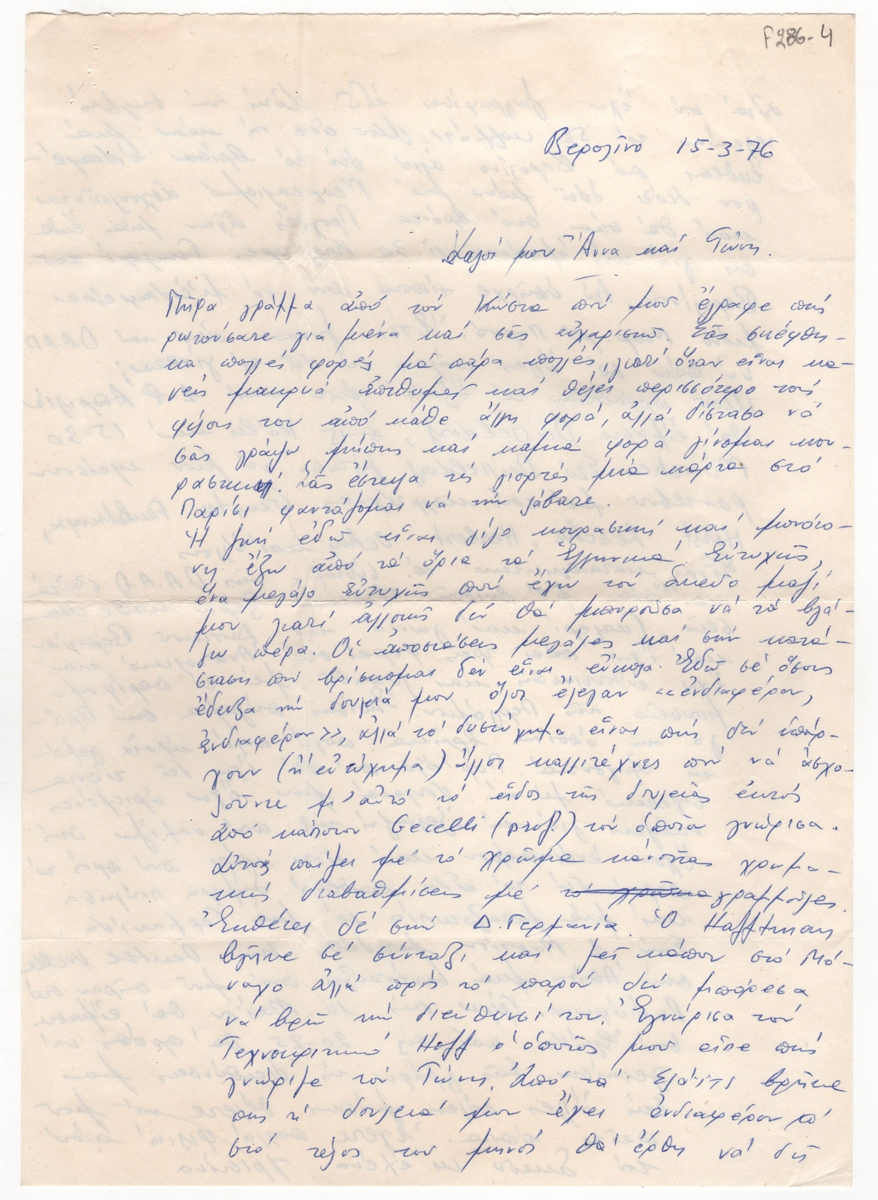 F286-4
Βερολίνο 15-3-76
Καλοί μου Άννα καί Γιάννη.
Πῆρα γράμμα ἀπό τόν Κώστα πού μοῦ ἔγραφε πώς
ρωτούσατε γιά μένα καί σᾶς εὐχαριστῶ. Σᾶς σκέφθη-
κα πολλές φορές μά πάρα πολλές, γιατί ὅταν εἶναι κα-
νείς μακρυά ἐπιθυμεῖ καί θέλει περισσότερο τούς
φίλους του ἀπό κάθε ἄλλη φορά, ἀλλά δίστασα νά
σᾶς γράψω μήπως καί καμμιά φορά γίνομαι κου-
ραστική. Σᾶς ἔστειλα τίς γιορτές μιά κάρτα στό
Παρίσι φαντάζομαι νά τήν λάβατε.
Ἡ ζωή ἐδῶ εἶναι λίγο κουραστική καί μονότο-
νη ἔξω ἀπό τά ὅρια τά Ἑλληνικά. Εὐτυχῶς,
ἕνα μεγάλο εὐτυχῶς πού ἔχω τόν μαζί
μου γιατί ἀλλοιῶς δέν θά μποροῦσα νά τά βγά-
λω πέρα. Οἱ ἀποστάσεις μεγάλες καί στήν κατά-
σταση πού βρίσκομαι δέν εἶναι εὔκολο. Ἐδῶ σέ ὅσους
ἔδειξα τή δουλειά μου ὅλοι ἔλεγαν «ἐνδιαφέρον,
ἐνδιαφέρον», ἀλλά τό δυστύχημα εἶναι πώς δέν ὑπάρ-
χουν (ἤ εὐτύχημα) ἄλλοι καλλιτέχνες πού νά ἀσχο-
λοῦνται μ' αὐτό τό εἶδος τῆς δουλειᾶς ἐκτός
ἀπό κάποιον Gecelli (prof.) τόν ὁποῖο γνώρισα.
Αὐτός παίζει μέ τό χρῶμα κάνοντας χρωμα-
τικές διαβαθμίσεις μέ τό χρῶμα γραμμοῦλες.
Ἐκθέτει δέ στήν Δ. Γερμανία. Ὁ Hafftmann
βγῆκε σέ σύνταξι καί ζεῖ κάπου στό Μό-
ναχο ἀλλά πρός τό παρόν δέν μπόρεσα
νά βρῶ τήν διεύθυνσί του. Ἐγνώρισα τόν
Τεχνοκριτικό Hoff ὁ ὁποῖος μοῦ εἶπε πώς
γνώριζε τόν Γιάννη. Ἀπό τά βρῆκε
πώς ἡ δουλειά μου ἔχει ἐνδιαφέρον κ'
στό τέλος τοῦ μηνός θά ἔρθη νά δῆ